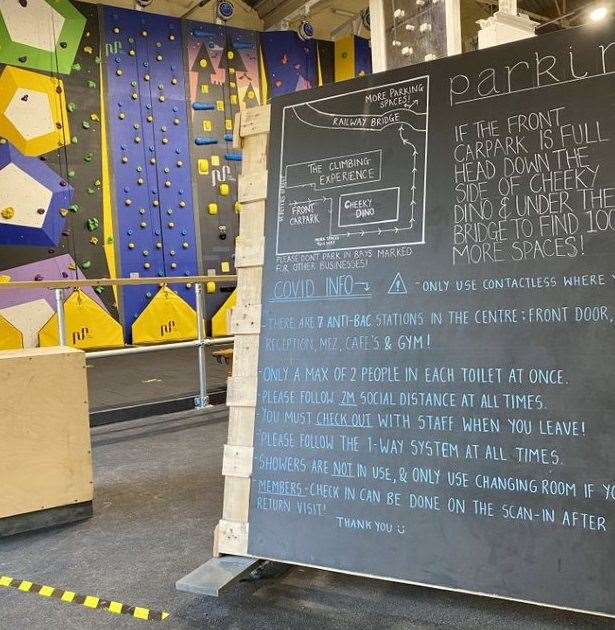 MORE PARKING
SPACES!
RAILWAY BRIDGE
THE CLIMBING
EXPERIENCE
FRONT
CARPARK
CHEEKY
DINO
PLEASE DONT PARK IN BAYS MARKED
FOR OTHER BUSINESSES!
parkin
IF THE FRONT
CARPARK IS FULL
HEAD DOWN THE
SIDE OF CHEEKY
DINO & UNDER THE
BRIDGE TO FIND 100
MORE SPACES!
COVID INFO → ⚠ -ONLY USE CONTACTLESS WHERE
-THERE ARE 7 ANTI-BAC STATIONS IN THE CENTRE: FRONT DOOR,
RECEPTION, MEZ, CAFE'S & GYM!
-ONLY A MAX OF 2 PEOPLE IN EACH TOILET AT ONCE.
-PLEASE FOLLOW 2M SOCIAL DISTANCE AT ALL TIMES.
-YOU MUST CHECK OUT WITH STAFF WHEN YOU LEAVE!
-PLEASE FOLLOW THE 1-WAY SYSTEM AT ALL TIMES.
-SHOWERS ARE NOT IN USE, & ONLY USE CHANGING ROOM IF YO
MEMBERS-CHECK IN CAN BE DONE ON THE SCAN-IN AFTER
RETURN VISIT!
THANK YOU ☺